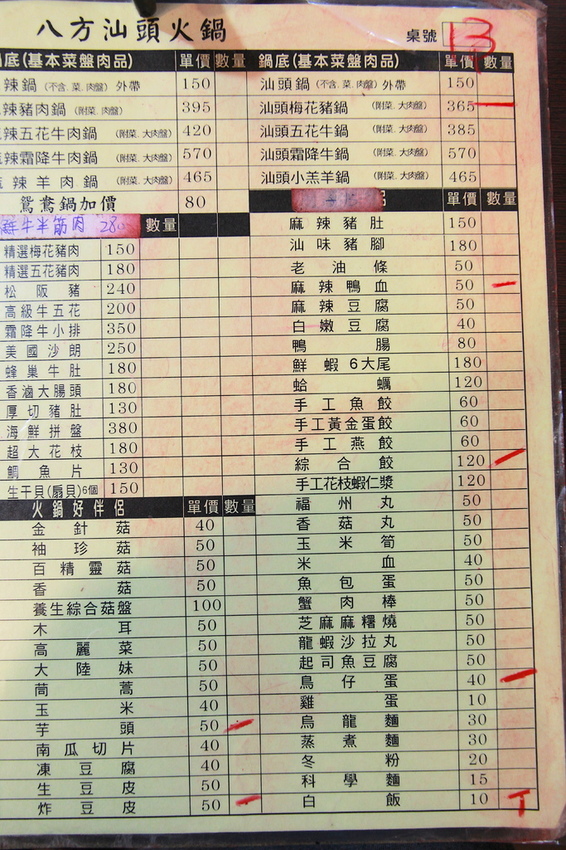 八方汕頭火鍋
桌號 13
鍋底(基本菜盤肉品) 單價 數量
辣鍋 (不含.菜.肉盤) 外帶 150
辣豬肉鍋 (附菜.肉盤) 395
辣五花牛肉鍋 (附菜.大肉盤) 420
辣霜降牛肉鍋 (附菜.大肉盤) 570
辣羊肉鍋 (附菜.大肉盤) 465
鴛鴦鍋加價 80
鮮牛半筋肉 280 數量
精選梅花豬肉 150
精選五花豬肉 180
松阪豬 240
高級牛五花 200
霜降牛小排 350
美國沙朗 250
蜂巢牛肚 180
香滷大腸頭 180
厚切豬肚 130
海鮮拼盤 380
超大花枝 180
鯛魚片 130
生干貝(扇貝)6個 150
火鍋好伴侶 單價 數量
金針菇 40
袖珍菇 50
百精靈菇 50
香菇 50
養生綜合菇盤 100
木耳 50
高麗菜 50
大陸妹 50
茼蒿 50
玉米 40
芋頭 50
南瓜切片 40
凍豆腐 40
生豆皮 50
炸豆皮 50
鍋底(基本菜盤肉品) 單價 數量
汕頭鍋 (不含.菜.肉盤) 外帶 150
汕頭梅花豬鍋 (附菜.肉盤) 365
汕頭五花牛鍋 (附菜.大肉盤) 385
汕頭霜降牛鍋 (附菜.大肉盤) 570
汕頭小羔羊鍋 (附菜.大肉盤) 465
單價 數量
麻辣豬肚 150
汕味豬腳 180
老油條 50
麻辣鴨血 50
麻辣豆腐 50
白嫩豆腐 40
鴨腸 80
鮮蝦6大尾 180
蛤蠣 120
手工魚餃 60
手工黃金蛋餃 60
手工燕餃 60
綜合餃 120
手工花枝蝦仁漿 120
福州丸 50
香菇丸 50
玉米筍 50
米血 40
魚包蛋 50
蟹肉棒 50
芝麻麻糬燒 50
龍蝦沙拉丸 50
起司魚豆腐 50
鳥仔蛋 40
雞蛋 10
烏龍麵 30
蒸煮麵 30
冬粉 20
科學麵 15
白飯 10